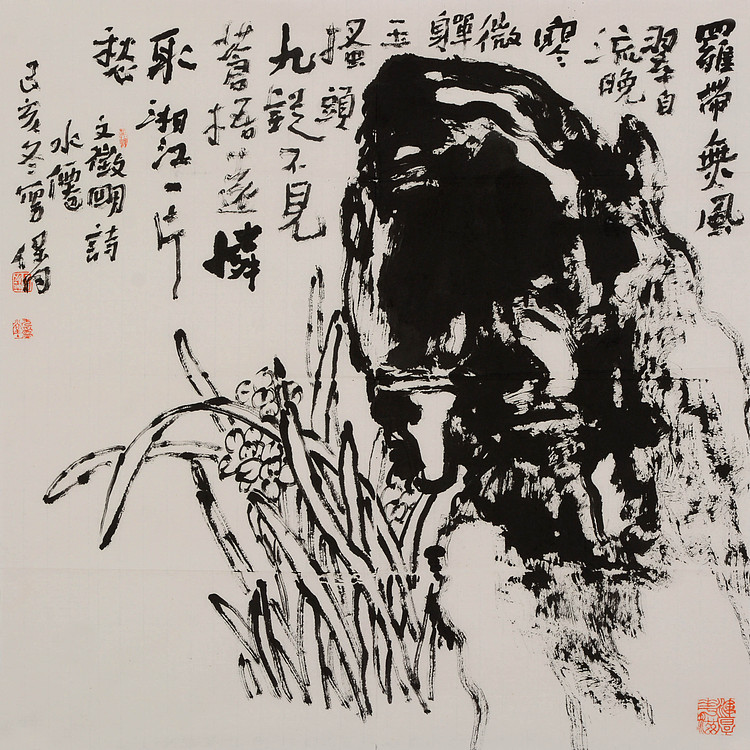 羅帶無風
翠自
流晚
寒
微
軃
玉
搔頭
九疑不見
蒼梧遠憐
取湘江一片
愁
文徵明詩
水僊
己亥冬